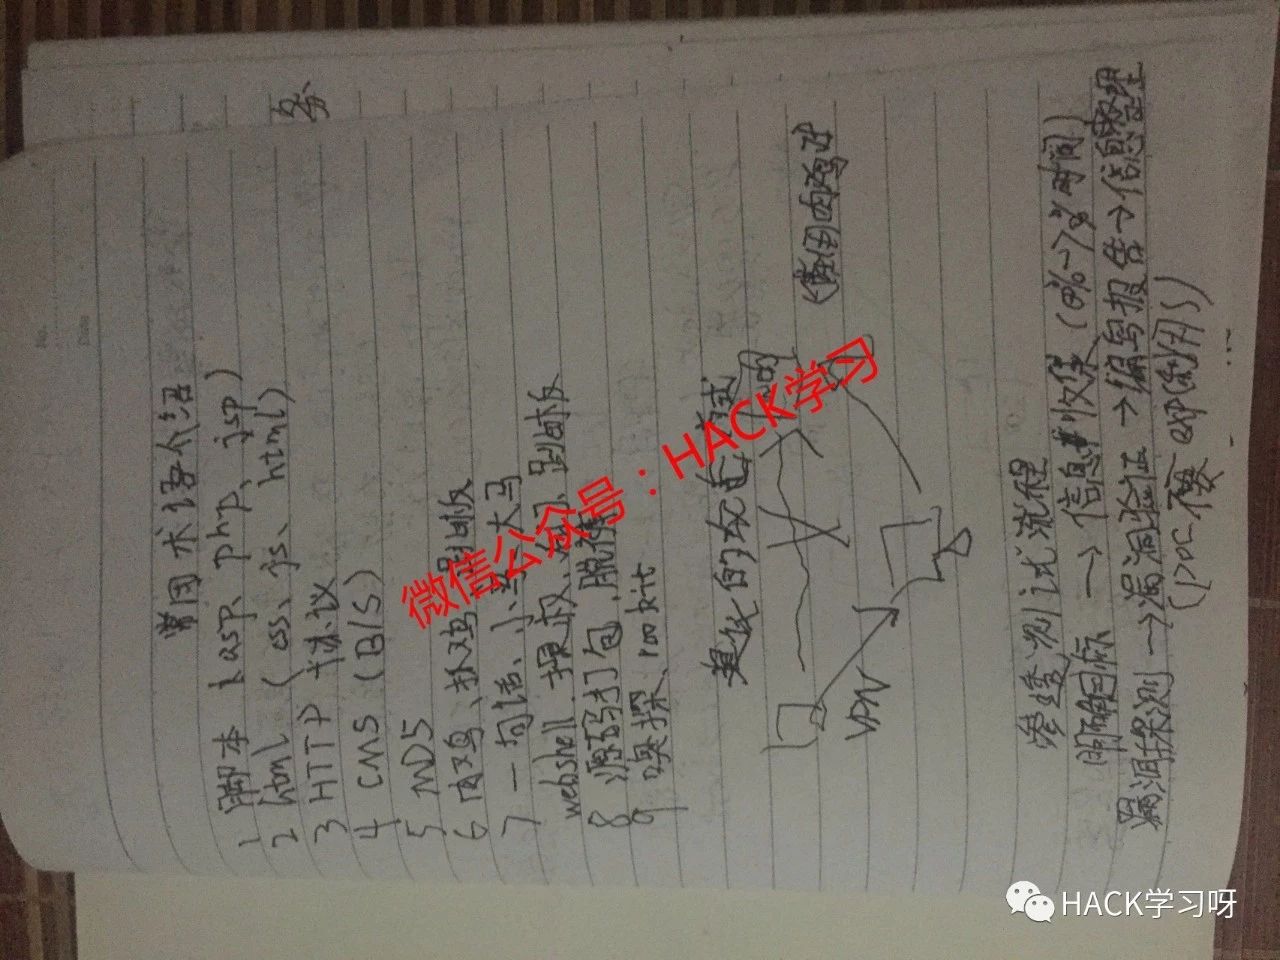 常用术语介绍
1 脚本（asp、php、jsp）
2 html（css、js、html）
3 HTTP 协议
4 CMS（B/S）
5 MD5
6 肉鸡、抓鸡、跳板
7 一句话、小马、大马
webshell、提权、后门、跳板
8 源码打包、脱库
9 嗅探、rootkit
的
VPN
（借用肉鸡
渗透测试流程
明确目标 → 信息收集（0%→7% 时间）
漏洞探测 → 漏洞验证 → 编写报告 → 信息整理
（poc 不要 exp（利用））
务
No.
Date
微信公众号：HACK学习
HACK学习呀